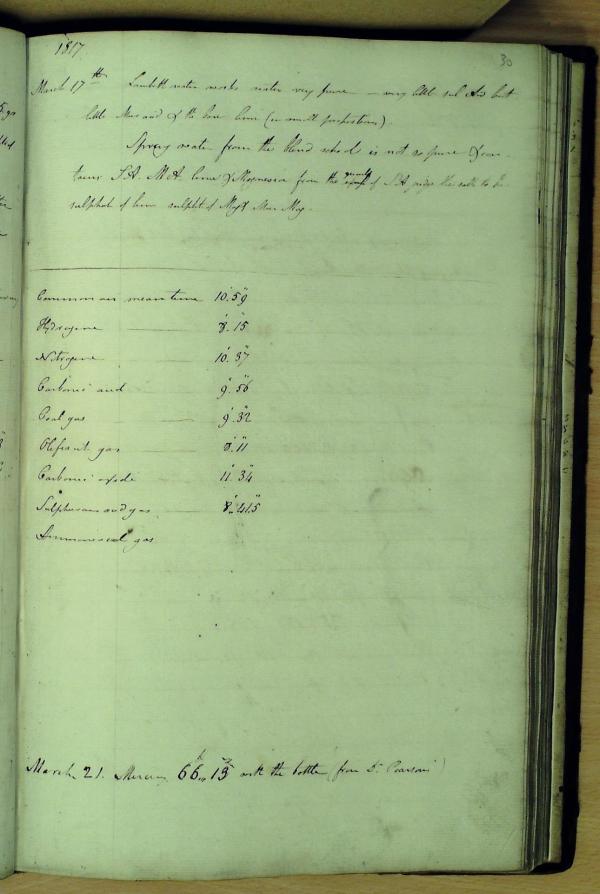 1817
30
March 17th Lambeth water works water very pure — very little sul Acid but
little Mur acid & the base lime (in small proportions)
Spring water from the blind school is not so pure & con-
tains S.A. M.A. lime & Magnesia from the quantity of S A judge the salts to be
sulphat of lime sulphat of Mag & Mur Mag.
Common air mean time 10'. 59"
Hydrogene 8'. 15"
Nitrogene 10'. 37"
Carbonic acid 9'. 56"
Coal gas 9'. 32"
Olefiant gas 8'. 11"
Carbonic oxide 11'. 34"
Sulphureous acid gas 8'. 41.5"
Ammoniacal gas
March 21. Mercury 66 lb, 13 oz with the bottle (from Dr. Pearson)